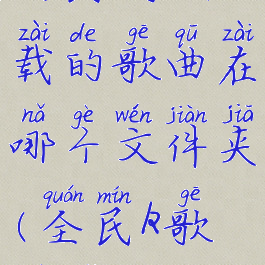 zài de gē qū zài
载的歌曲在
nǎ gè wén jiàn jiā
哪个文件夹
quán mín gē
(全民K歌